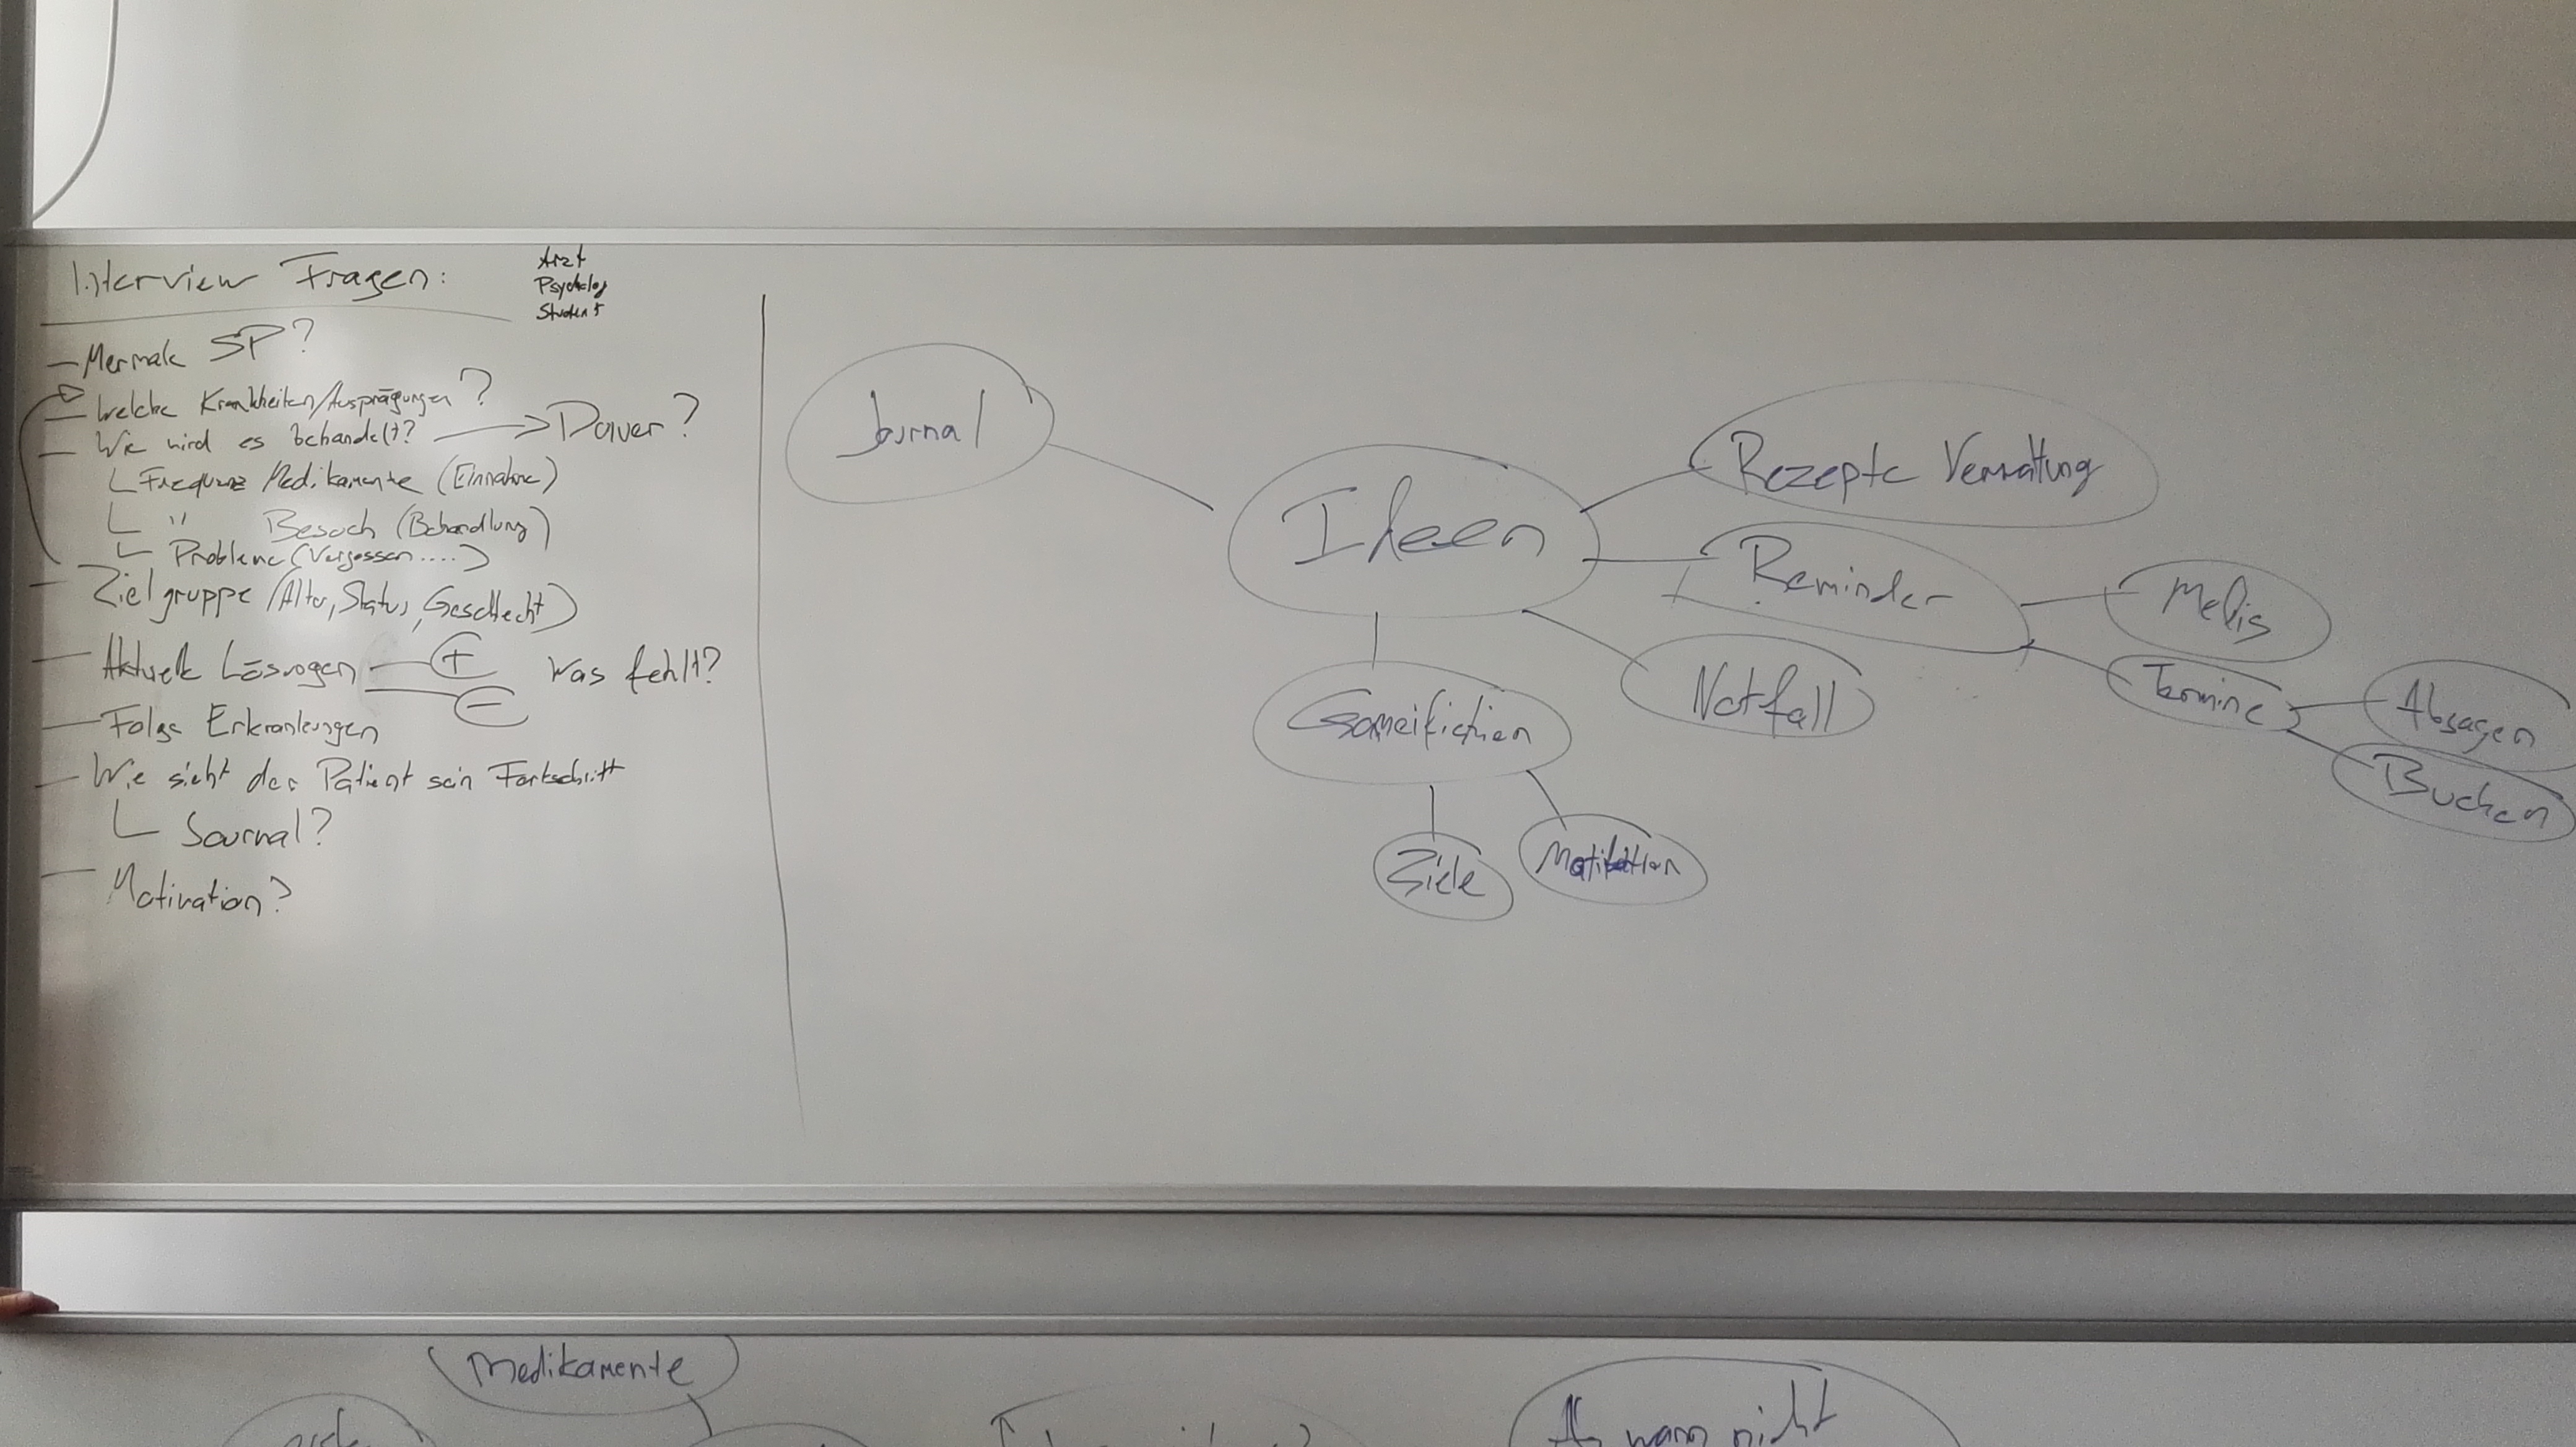 Interview Fragen:
Arzt
Psycholog
Student
- Mermale SP?
- Welche Krankheiten/Ausprägungen?
- Wie wird es behandelt? → Dauer?
Frequenz Medikamente (Einnahme)
" Besuch (Behandlung)
Probleme (Vergessen....)
- Zielgruppe (Alter, Status, Geschlecht)
- Aktuelle Lösungen + - Was fehlt?
- Folge Erkrankungen
- Wie sieht der Patient sein Fortschritt
Journal?
- Motivation?
Journal
Ideen
Rezepte Verwaltung
Reminder
Medis
Termine
Absagen
Buchen
Notfall
Gameifiction
Ziele
Motivation
Medikamente
wann nicht